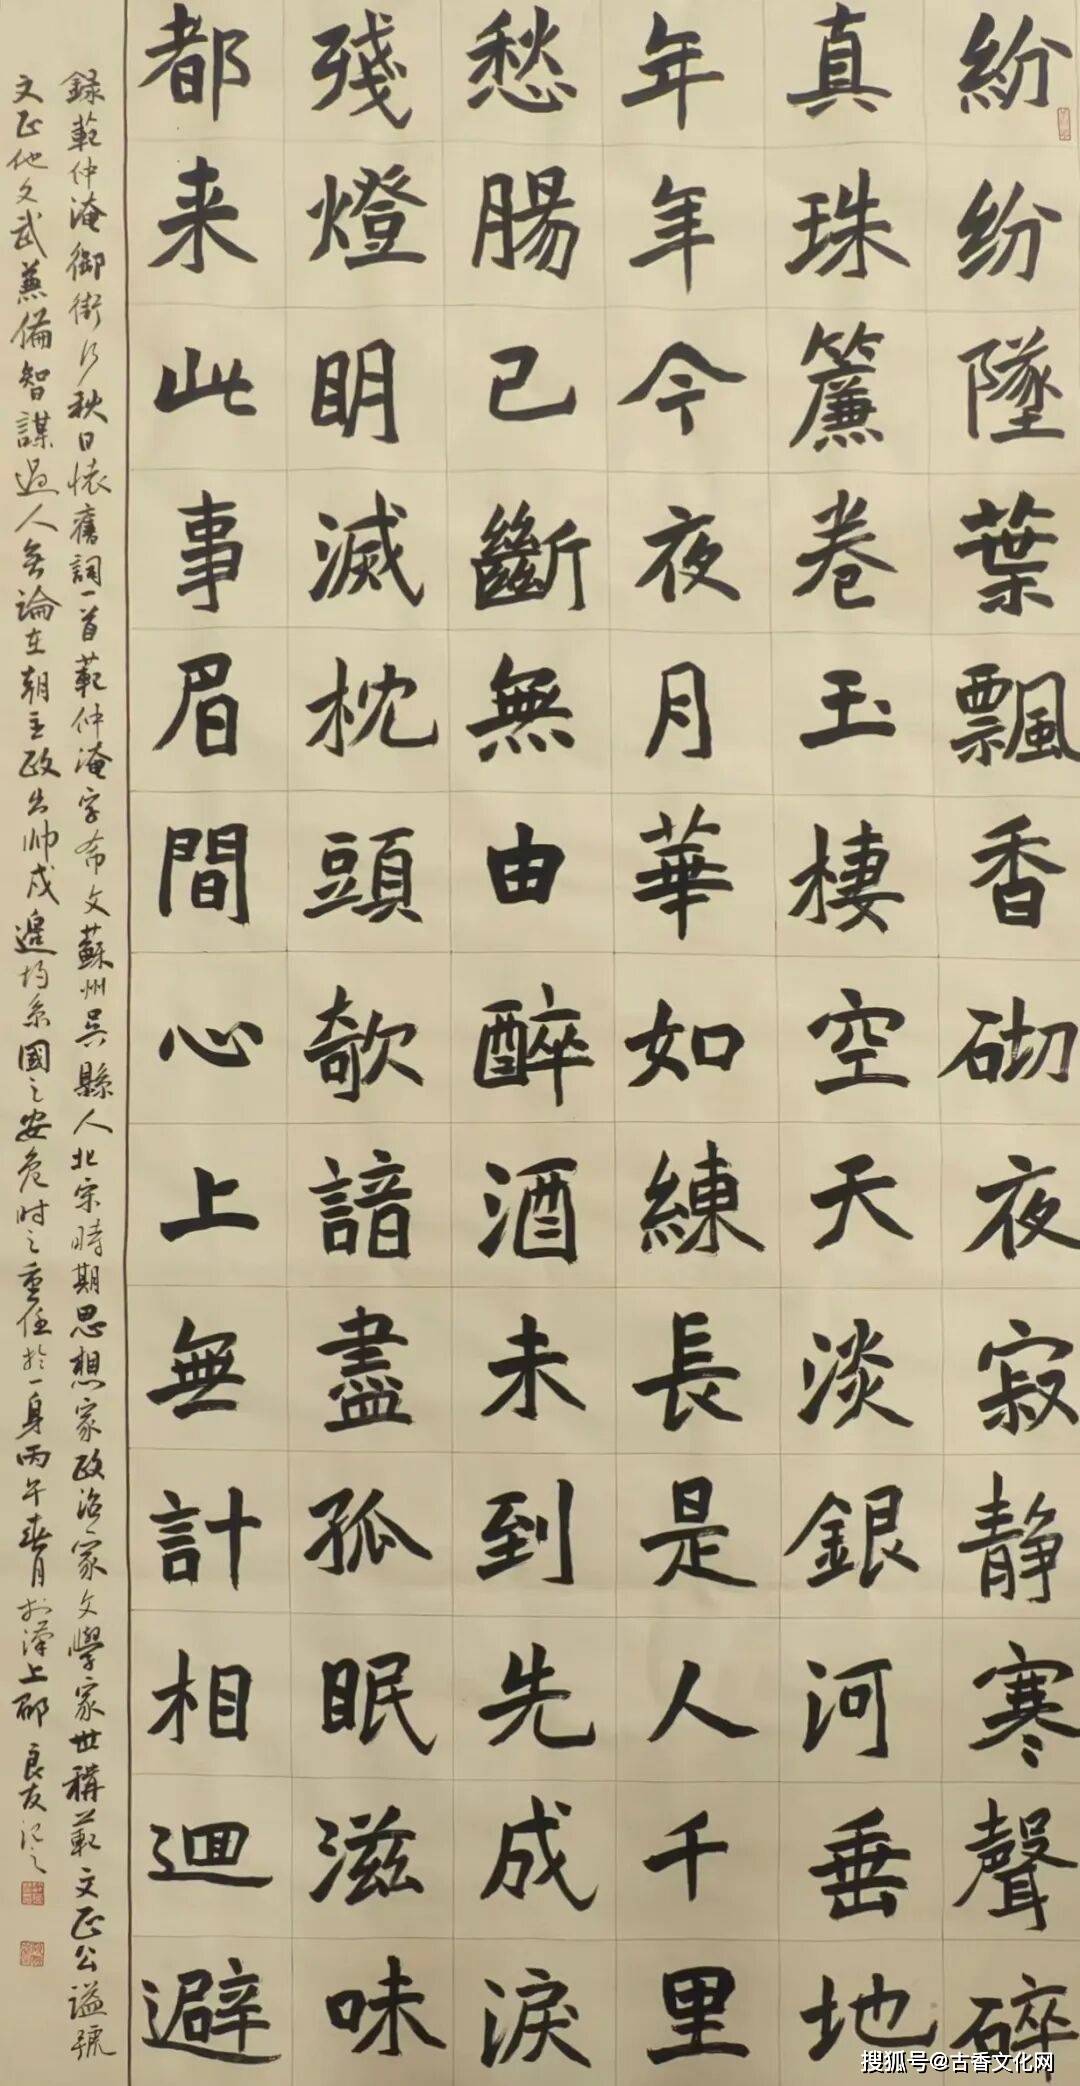 紛紛墜葉飄香砌夜寂静寒聲碎
真珠簾卷玉棲空天淡銀河垂地
年年今夜月華如練長是人千里
愁腸已斷無由醉酒未到先成淚
殘燈明滅枕頭欹諳盡孤眠滋味
都来此事眉間心上無計相迴避
録範仲淹御街行秋日懷舊詞一首範仲淹字希文蘇州吳縣人北宋時期思想家政治家文學家世稱範文正公謚號
文正他文武兼備智謀過人無論在朝主政出帥戍邊均系國之安危时之重任於一身丙午春月於漢上邵良友记之
搜狐号@古香文化网